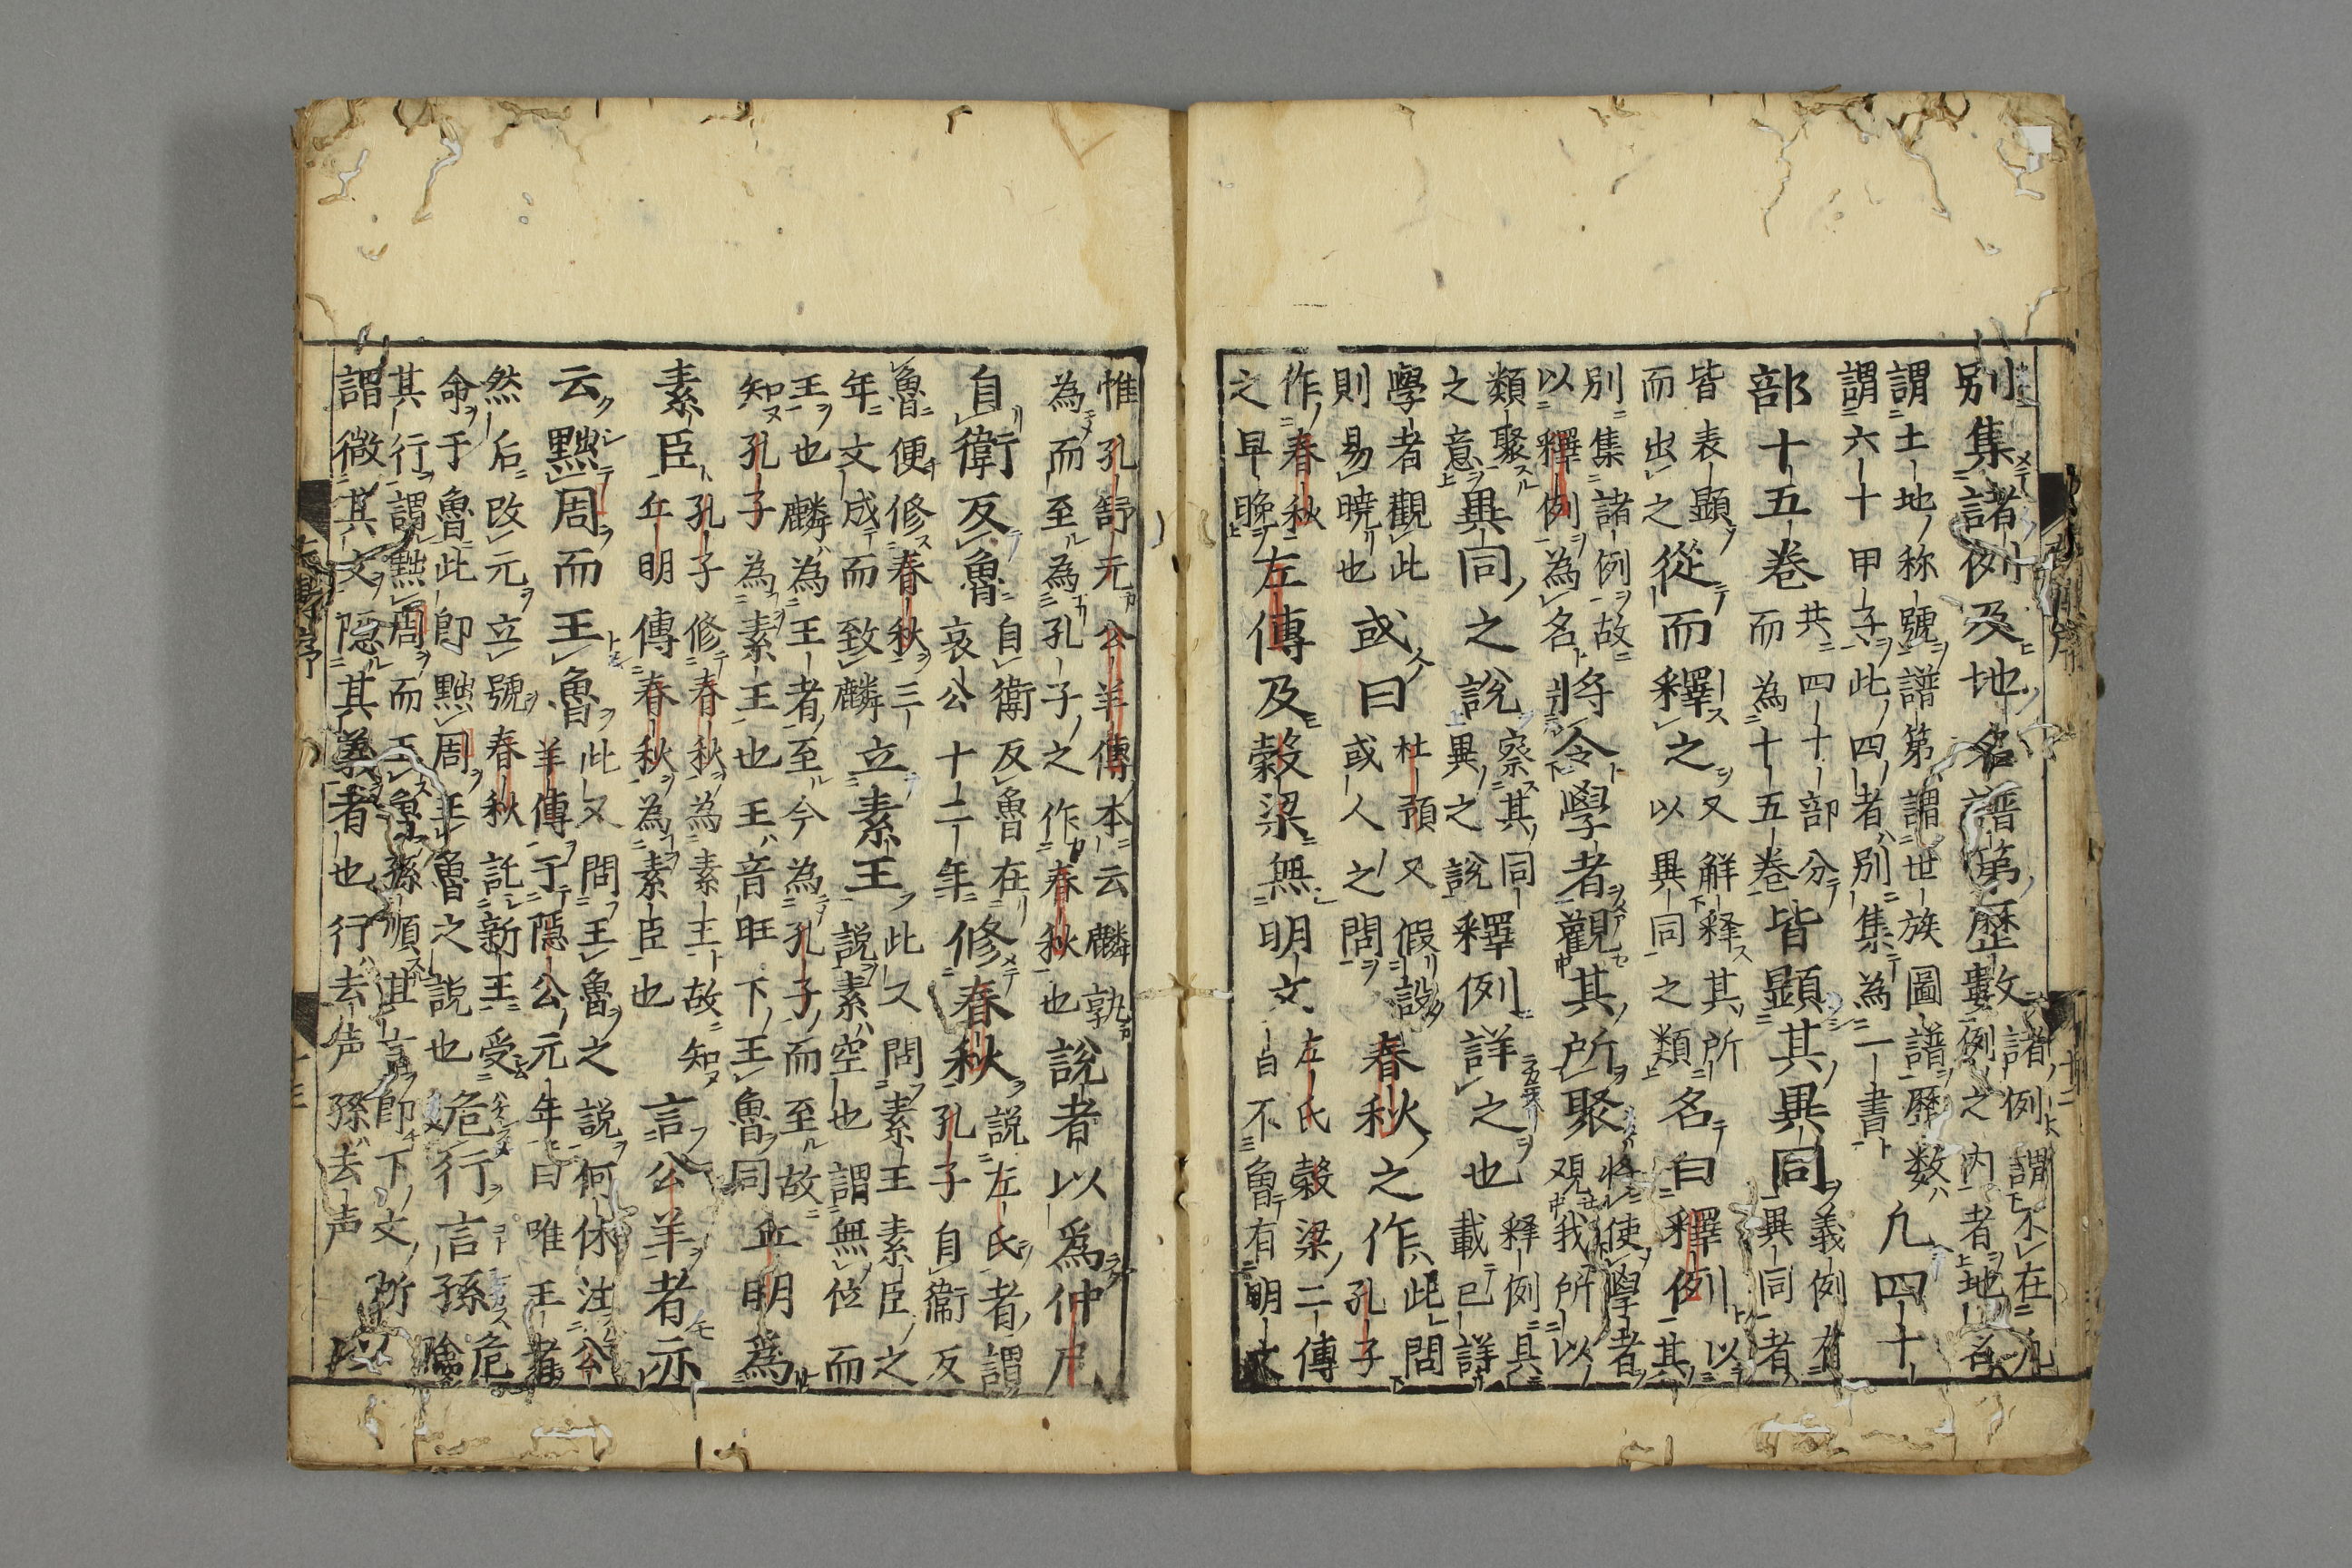 別集諸例及地名譜第歷數諸例謂不在凢例之内者地名
謂土地称號譜第謂世族圖譜歴数
謂六十甲子此四者別集為一書凢四十
部十五巻共四十部分而為十五巻皆顯其異同義例有異同者
皆表顯而出之從而釋之又解釋其所以異同之類名曰釋例以其
別集諸例故以釋例為名將令學者觀其所聚將使學者観我所以
類聚之意異同之說察其同異之說釋例詳之也釋例具載已詳
學者觀此則易曉也或曰杜預又假設或人之問春秋之作此問孔子
作春秋之早晚左傳及穀梁無明文左氏穀梁二傳自不有明文
惟孔舒元公羊傳本云麟孰為而至為孔子之作春秋也說者以爲仲尼
自衛反魯自衛反魯在哀公十二年修春秋說左氏者謂孔子自衞反
魯便修春秋三年文成而致麟立素王此又問素王素臣之說素空也謂無位而
王也麟為王者至今為孔子而至故知孔子為素王也王音旺下王魯同丘明爲
素臣孔子修春秋為素王故知丘明傳春秋為素臣也言公羊者亦
云黜周而王魯此又問王魯之説何休注公羊傳于隱公元年曰唯王者
然后改元立號春秋託新王受命于魯此即黜周王魯之説也危行言孫危
其行謂黜周而王魯孫順其言即下文所謂微其文隠其義者也行去声孫去声